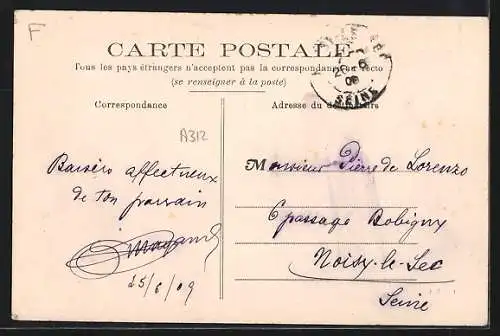 F
CARTE POSTALE
Tous les pays étrangers n'acceptent pas la correspondance au recto
(se renseigner à la poste)
Correspondance
Adresse du
SEINE
A312
Baisers affectueux
de ton parrain
25/6/09
Monsieur Pierre de Lorenzo
6 passage Bobigny
Noisy-le-Sec
Seine